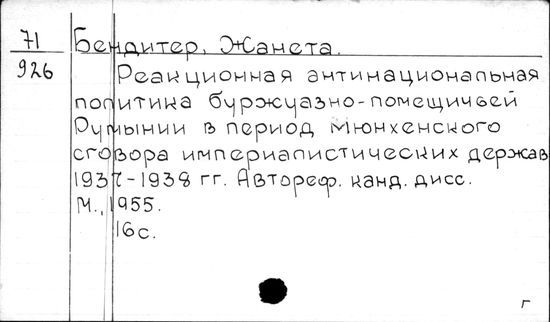 71
926
Бендитер, Жанета.
Реакционная антинациональная
политика буржуазно-помещичьей
Румынии в период мюнхенского
сговора империалистических держав
1937-1938 гг. Автореф. канд. дисс.
М., 1955.
16 с.
г